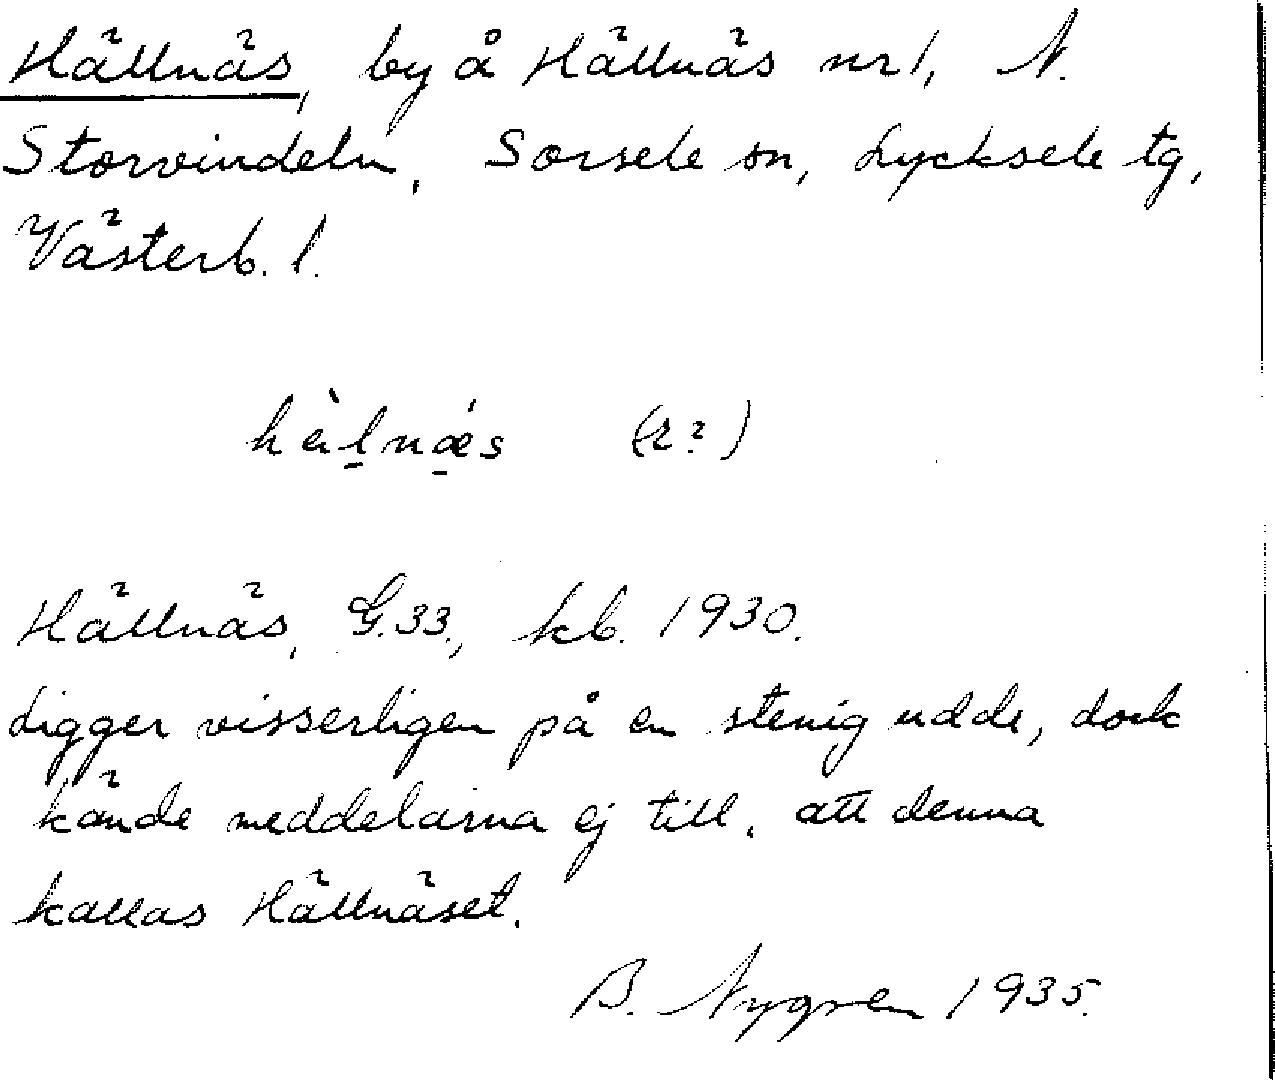 Hällnäs, by å Hällnäs nr 1, N.
Storvindeln, Sorsele sn, Lycksele tg,
Västerb. l.
hälnæs (r?)
Hällnäs, G.33., kb. 1930.
Ligger visserligen på en stenig udde, dock
kände meddelarna ej till, att denna
kallas Hällnäset.
B. Nygren 1935.